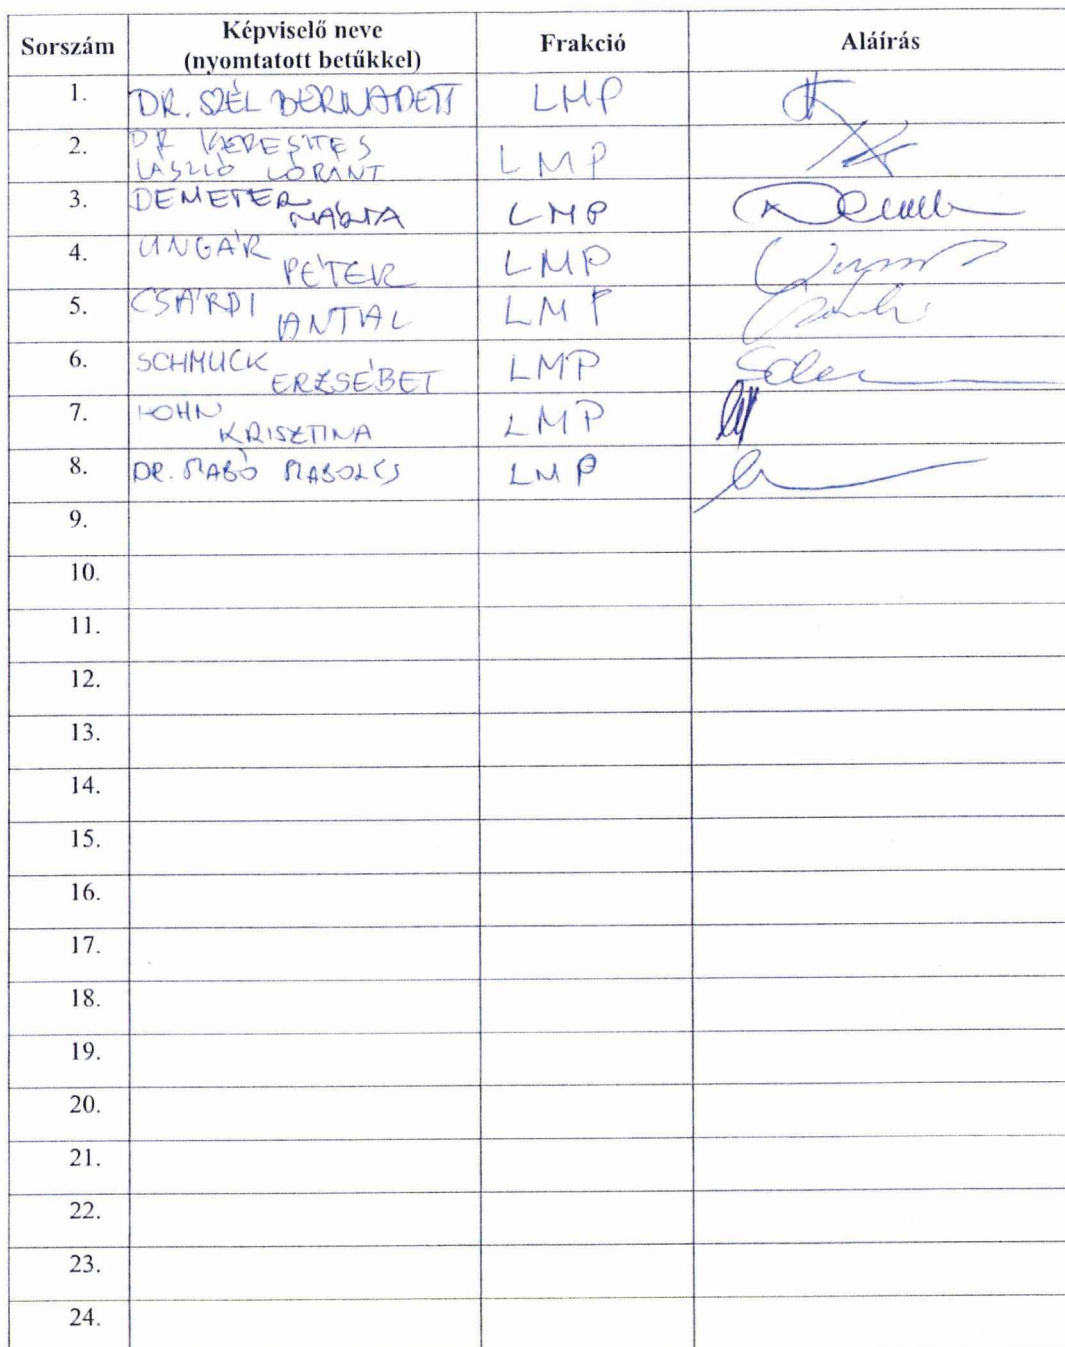 Sorszám Képviselő neve (nyomtatott betűkkel) Frakció Aláírás
1. DR. SZÉL BERNADETT LMP
2. DR KERESZTES LÁSZLÓ LÓRÁNT LMP
3. DEMETER MÁRTA LMP
4. UNGÁR PÉTER LMP
5. CSÁRDI ANTAL LMP
6. SCHMUCK ERZSÉBET LMP
7. HOHN KRISZTINA LMP
8. DR. SZABÓ SZABOLCS LMP
9.
10.
11.
12.
13.
14.
15.
16.
17.
18.
19.
20.
21.
22.
23.
24.